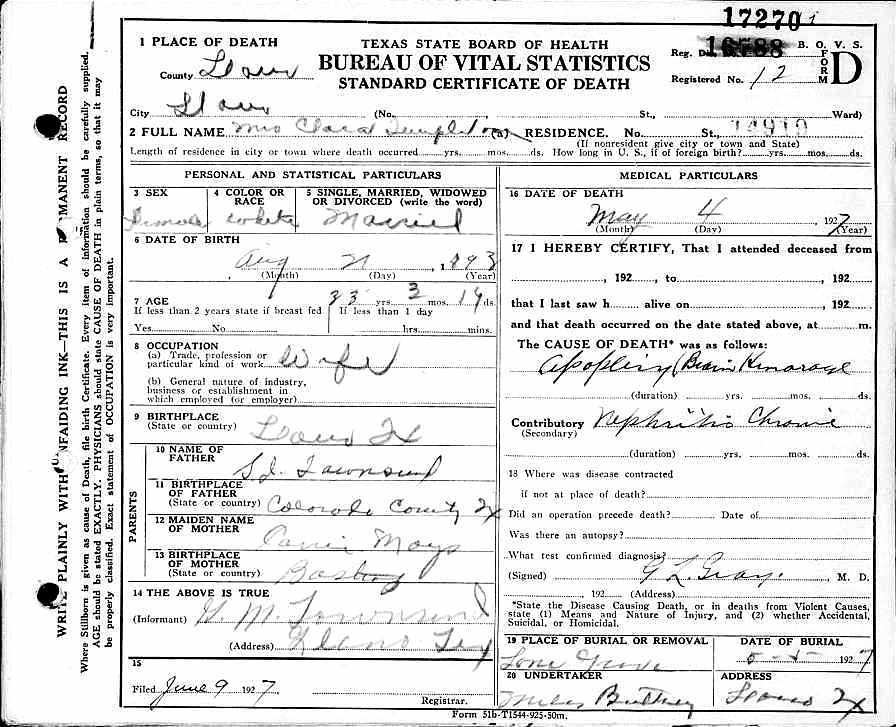 17270
16588 B. O. V. S.
1 PLACE OF DEATH
TEXAS STATE BOARD OF HEALTH
BUREAU OF VITAL STATISTICS
STANDARD CERTIFICATE OF DEATH
Reg. FORM D
Registered No. 12
County Llano
City Llano (No. St., Ward)
2 FULL NAME Mrs Clara Templeton (a) RESIDENCE. No. St.,
(If nonresident give city or town and State)
Length of residence in city or town where death occurred yrs. mos. ds. How long in U. S., if of foreign birth? yrs. mos. ds.
PERSONAL AND STATISTICAL PARTICULARS
3 SEX
Female
4 COLOR OR RACE
white
5 SINGLE, MARRIED, WIDOWED OR DIVORCED (write the word)
Married
6 DATE OF BIRTH
Aug 21, 1893
(Month) (Day) (Year)
7 AGE
33 yrs. 3 mos. 14 ds.
If less than 2 years state if breast fed
If less than 1 day
Yes No hrs. mins.
8 OCCUPATION
(a) Trade, profession or
particular kind of work Wife
(b) General nature of industry,
business or establishment in
which employed (or employer)
9 BIRTHPLACE
(State or country) Llano Tx
PARENTS
10 NAME OF
FATHER S.J. Townsend
11 BIRTHPLACE
OF FATHER
(State or country) Colorado County Tx
12 MAIDEN NAME
OF MOTHER Mays
13 BIRTHPLACE
OF MOTHER
(State or country)
14 THE ABOVE IS TRUE
(Informant) M. Townsend
(Address) Llano Tex
15
Filed June 9 1927
Registrar.
MEDICAL PARTICULARS
16 DATE OF DEATH
May 4 1927
(Month) (Day) (Year)
17 I HEREBY CERTIFY, That I attended deceased from
, 192 , to , 192
that I last saw h alive on , 192
and that death occurred on the date stated above, at m.
The CAUSE OF DEATH* was as follows:
Apoplexy (Brain Hemorage
(duration) yrs. mos. ds.
Contributory Nephritis Chronic
(Secondary)
(duration) yrs. mos. ds.
18 Where was disease contracted
if not at place of death?
Did an operation precede death? Date of
Was there an autopsy?
What test confirmed diagnosis?
(Signed) G L Gray, M. D.
, 192 (Address)
*State the Disease Causing Death, or in deaths from Violent Causes,
state (1) Means and Nature of Injury, and (2) whether Accidental,
Suicidal, or Homicidal.
19 PLACE OF BURIAL OR REMOVAL
Lone Grove
DATE OF BURIAL
5-5- 1927
20 UNDERTAKER
ADDRESS
Llano Tx
Form 51b-T1544-925-50m.
WRITE PLAINLY WITH UNFAIDING INK—THIS IS A PERMANENT RECORD
Where Stillborn is given as cause of Death, file birth Certificate. Every item of information should be carefully supplied.
AGE should be stated EXACTLY. PHYSICIANS should state CAUSE OF DEATH in plain terms, so that it may
be properly classified. Exact statement of OCCUPATION is very important.